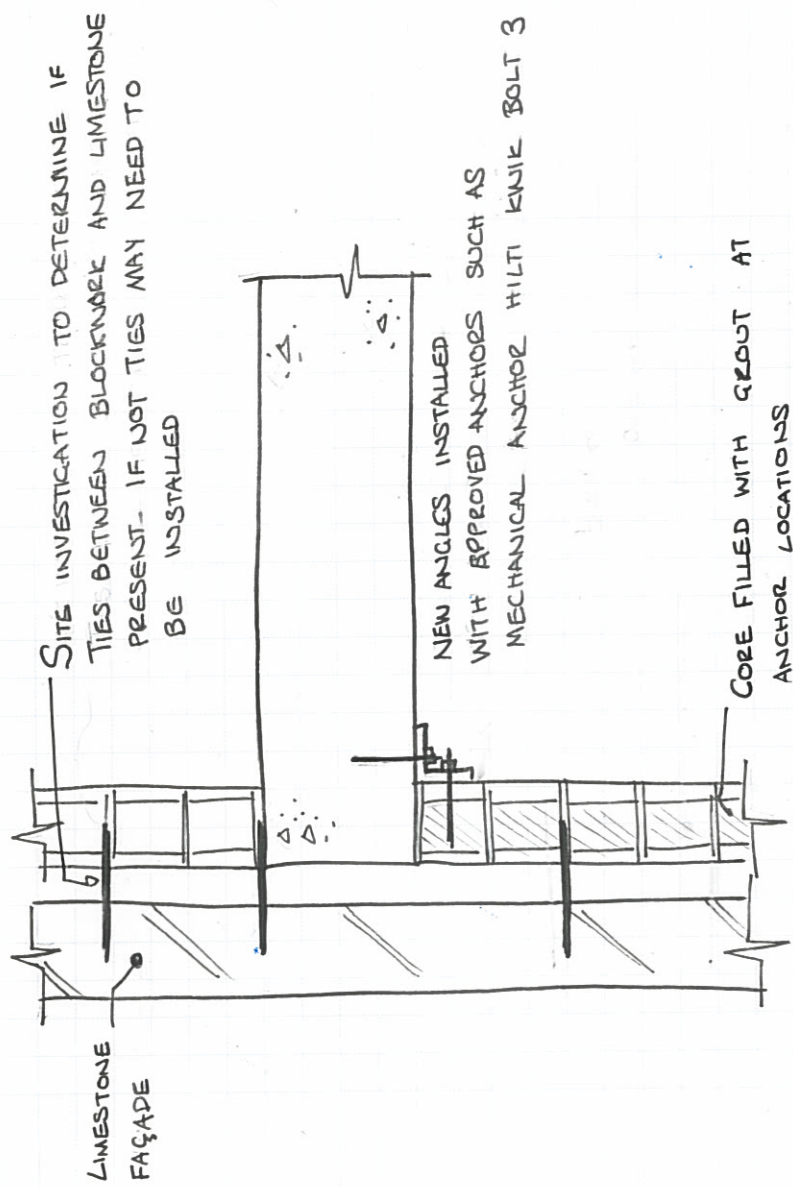 SITE INVESTIGATION TO DETERMINE IF
TIES BETWEEN BLOCKWORK AND LIMESTONE
PRESENT. IF NOT TIES MAY NEED TO
BE INSTALLED
LIMESTONE
FAÇADE
NEW ANGLES INSTALLED
WITH APPROVED ANCHORS SUCH AS
MECHANICAL ANCHOR HILTI KWIK BOLT 3
CORE FILLED WITH GROUT AT
ANCHOR LOCATIONS